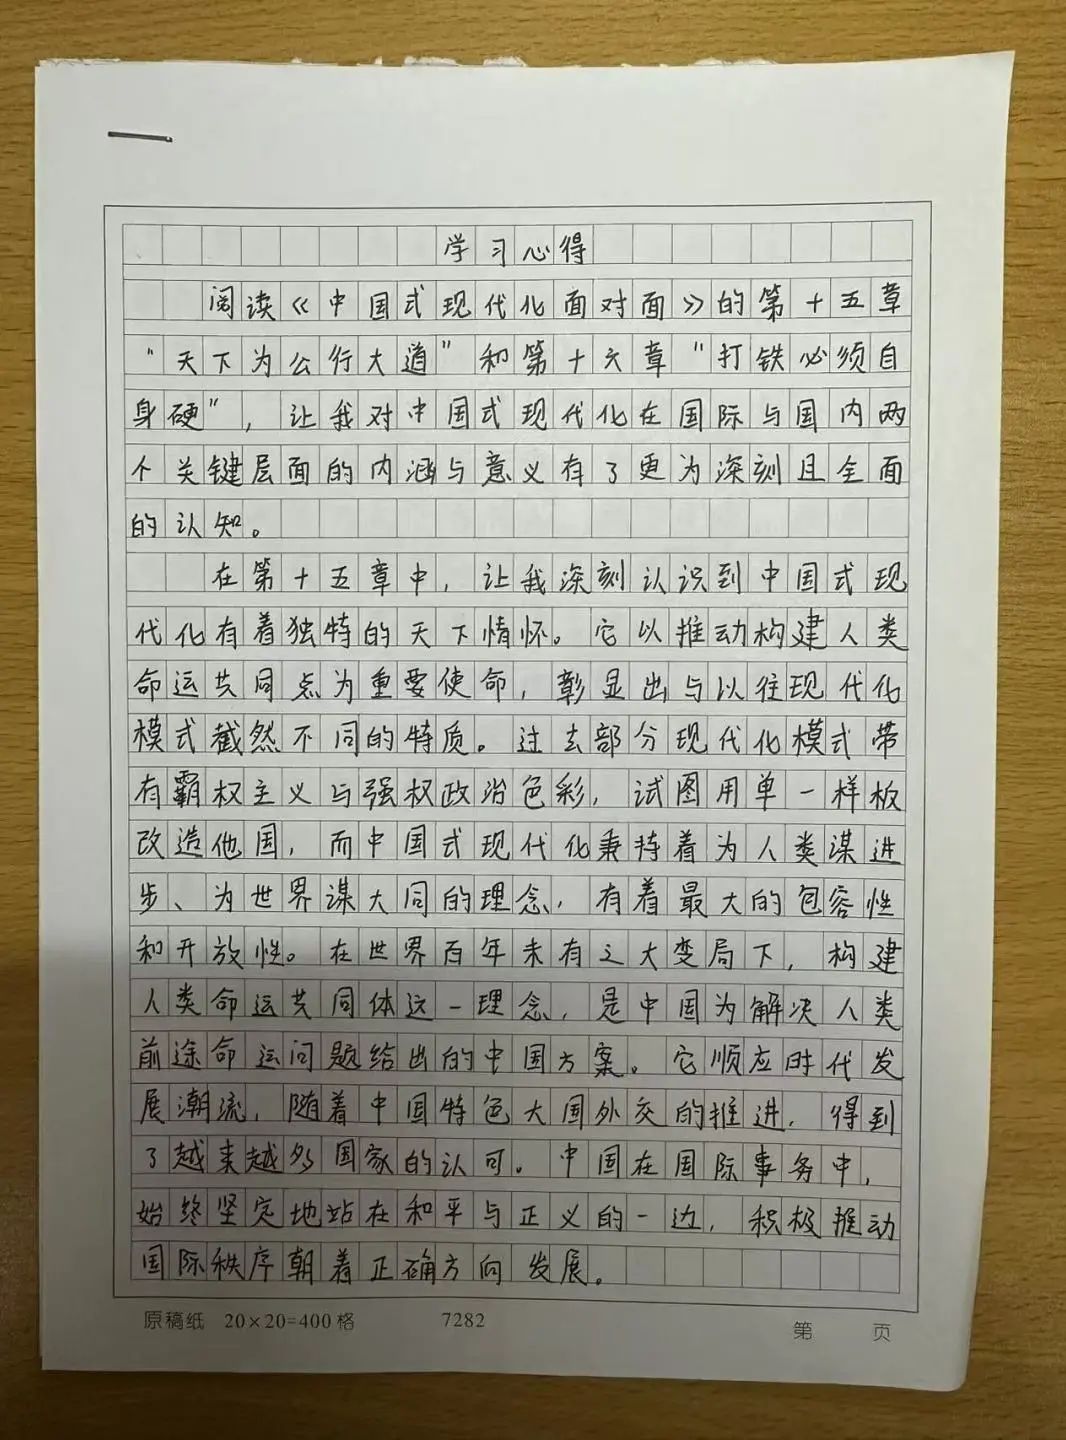 学习心得
阅读《中国式现代化面对面》的第十五章
“天下为公行大道”和第十六章“打铁必须自
身硬”，让我对中国式现代化在国际与国内两
个关键层面的内涵与意义有了更为深刻且全面
的认知。
在第十五章中，让我深刻认识到中国式现
代化有着独特的天下情怀。它以推动构建人类
命运共同点为重要使命，彰显出与以往现代化
模式截然不同的特质。过去部分现代化模式带
有霸权主义与强权政治色彩，试图用单一样板
改造他国，而中国式现代化秉持着为人类谋进
步、为世界谋大同的理念，有着最大的包容性
和开放性。在世界百年未有之大变局下，构建
人类命运共同体这一理念，是中国为解决人类
前途命运问题给出的中国方案。它顺应时代发
展潮流，随着中国特色大国外交的推进，得到
了越来越多国家的认可。中国在国际事务中，
始终坚定地站在和平与正义的一边，积极推动
国际秩序朝着正确方向发展。
原稿纸 20×20=400格 7282 第 页